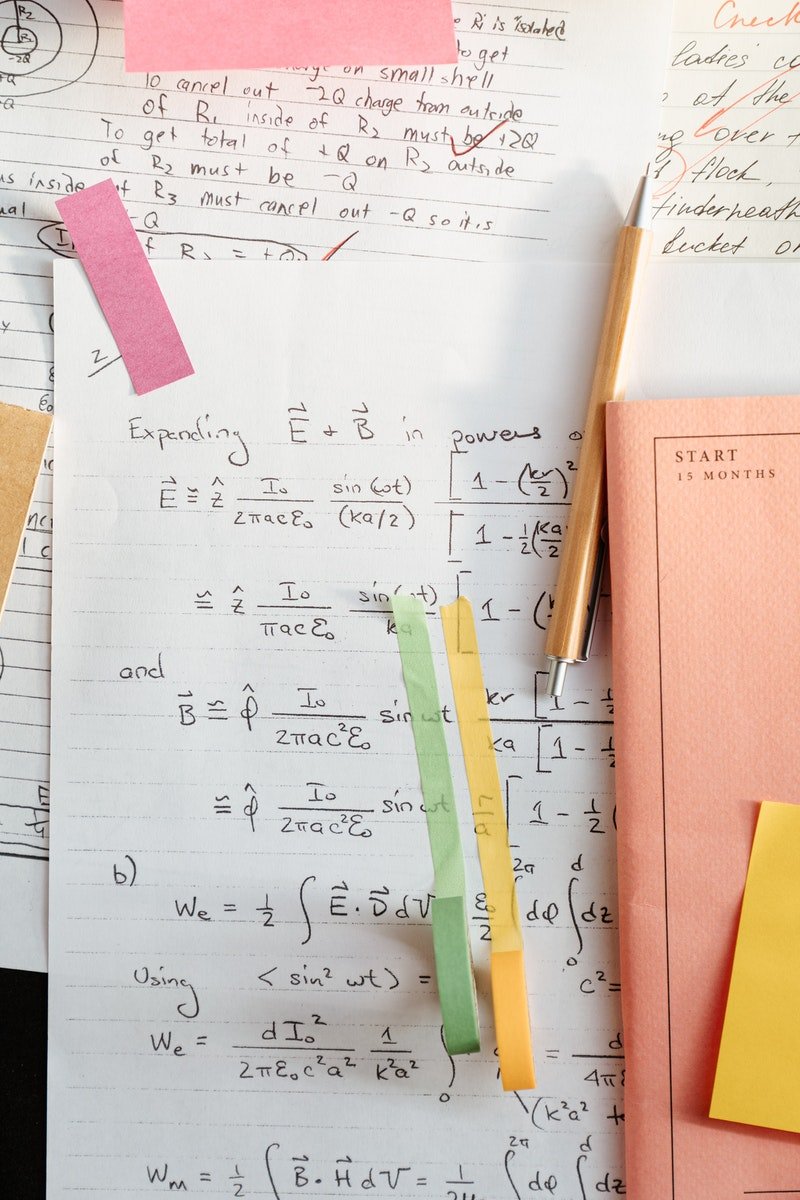 R₂
R₁
-2Q
+Q
-Q
Ri is isolated
to get
charge on small shell
To cancel out -2Q charge from outside
of R₁ inside of R₂ must be +2Q
To get total of +Q on R₂ outside
of R₂ must be -Q
inside of R₃ must cancel out -Q so it,s
-Q
f R₂ = +Q
Check
ladies' co
at the
ng over t
flock,
finderneath
bucket on
2
Expanding E⃗ + B⃗ in powers o
E⃗ ≅ ẑ I₀/2πacε₀ sin(ωt)/(ka/2) [1 - (kr/2)²/[1 - ½(ka/2
≅ ẑ I₀/πacε₀ sin(ωt)/ka [1 - (k
and
B⃗ ≅ φ̂ I₀/2πac²ε₀ sin ωt kr/ka [1 - ½/[1 - ½
≅ φ̂ I₀/2πac²ε₀ sin ωt r/a [1 - ½(
b)
We = ½ ∫ E⃗ · D⃗ dV ε₀/2 ∫ 2π dφ ∫ d 0 dz
Using < sin² ωt) = c² =
We = dI₀²/2πε₀c²a² 1/k²a² ∫ 0 = d/4πε
(k²a²
Wm = ½ ∫ B⃗ · H⃗ dV = 1/2μ ∫ 2π dφ ∫ d dz
START
15 MONTHS